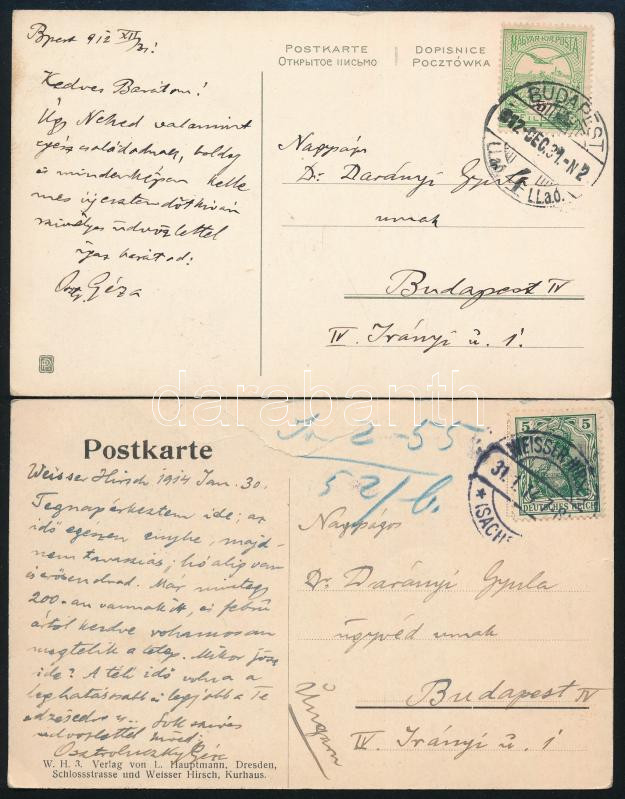 Bpest 912 XII/31!
POSTKARTE
DOPISNICE
ОТКРЫТОЕ ПИСЬМО
POCZTÓWKA
MAGYAR KIR. POSTA
BUDAPEST
912 DEC. 31. N2
4
I.I.a.ó.
Kedves Barátom!
Úgy Neked valamint
egész családodnak, boldog
és mindenképen kelle
mes új esztendőt kíván
szívélyes üdvözlettel
igaz barátod:
Géza
Nagyságos
Dr. Darányi Gyula
urnak
Budapest IV
IV. Irányi u. 1.
darabanth
Postkarte
2-55
52/6.
5 5
DEUTSCHES REICH
WEISSER HIRSCH
31. 1.
* (SACHS
Weisser Hirsch 1914 Jan. 30.
Tegnap érkeztem ide; az
idő egészen enyhe, majd-
nem tavaszias; hó alig van
és erősen olvad. Már mintegy
200-an vannak itt, és febru
ártól kezdve rohamosan
megtelik a telep. Mikor jösz
ide? A téli idő volna a
leghatásosabb és legjobb a Te
Sok szíves
üdvözlettel
Osztroluczky Géza
Nagyságos
Dr. Darányi Gyula
ügyvéd urnak
Budapest IV
IV. Irányi u. 1
Ungarn
W. H. 3. Verlag von L. Hauptmann, Dresden,
Schlossstrasse und Weisser Hirsch, Kurhaus.